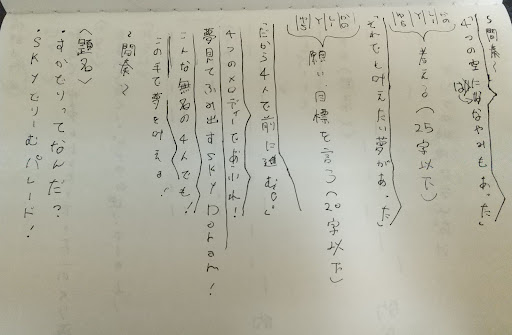 〜間奏〜
4つの空に なやみもあった」
考える(25字以下)
「それでも叶えたい夢があった」
願い、目標を言う(20字以下)
「だから4人で前に進む。」
4つのメロディーであふれ!
夢見てふみ出すSKY Doream!
こんな無名の4人でも!
この手で夢を叶える!
〜間奏〜
〈題名〉
・すかでりってなんだ?
・SKYでりーむパレード!